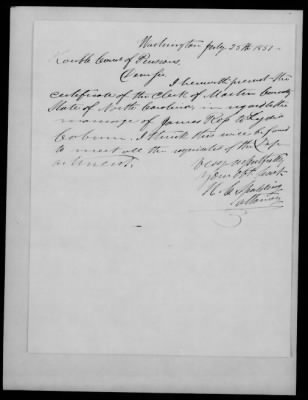 Washington July 25th 1851
Honble Comr of Pensions
I herewith present the
certificate of the Clerk of Martin County
State of North Carolina, in regard to the
marriage of James to Lydia
Coburn. I think this will be found
to meet all the requisites of the Dept
Very respectfully
Your Obt Servt
Attorney